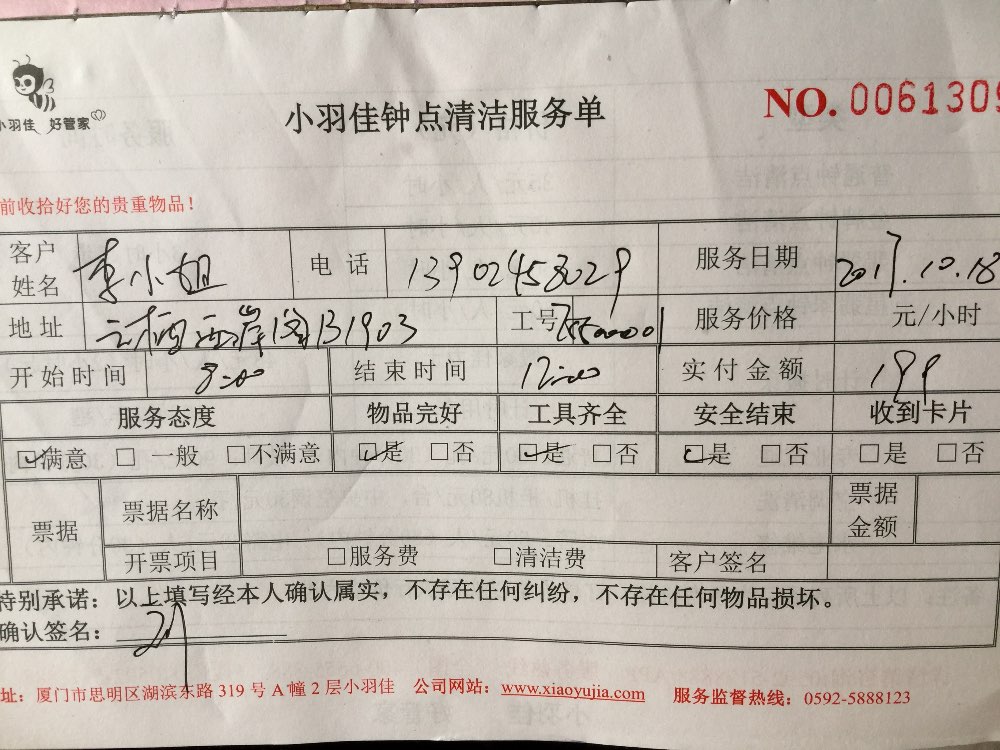 小羽佳 好管家
小羽佳钟点清洁服务单
NO. 0061309
前收拾好您的贵重物品！
客户姓名 李小姐 电话 13902458029 服务日期 2017.10.18
地址 西岸阁B1903 工号 服务价格 元/小时
开始时间 8:00 结束时间 12:00 实付金额 199
服务态度 物品完好 工具齐全 安全结束 收到卡片
☑满意 □一般 □不满意 ☑是 □否 ☑是 □否 ☑是 □否 □是 □否
票据 票据名称 票据金额
开票项目 □服务费 □清洁费 客户签名
特别承诺：以上填写经本人确认属实，不存在任何纠纷，不存在任何物品损坏。
确认签名：
址：厦门市思明区湖滨东路 319 号 A 幢 2 层小羽佳 公司网站：www.xiaoyujia.com 服务监督热线：0592-5888123